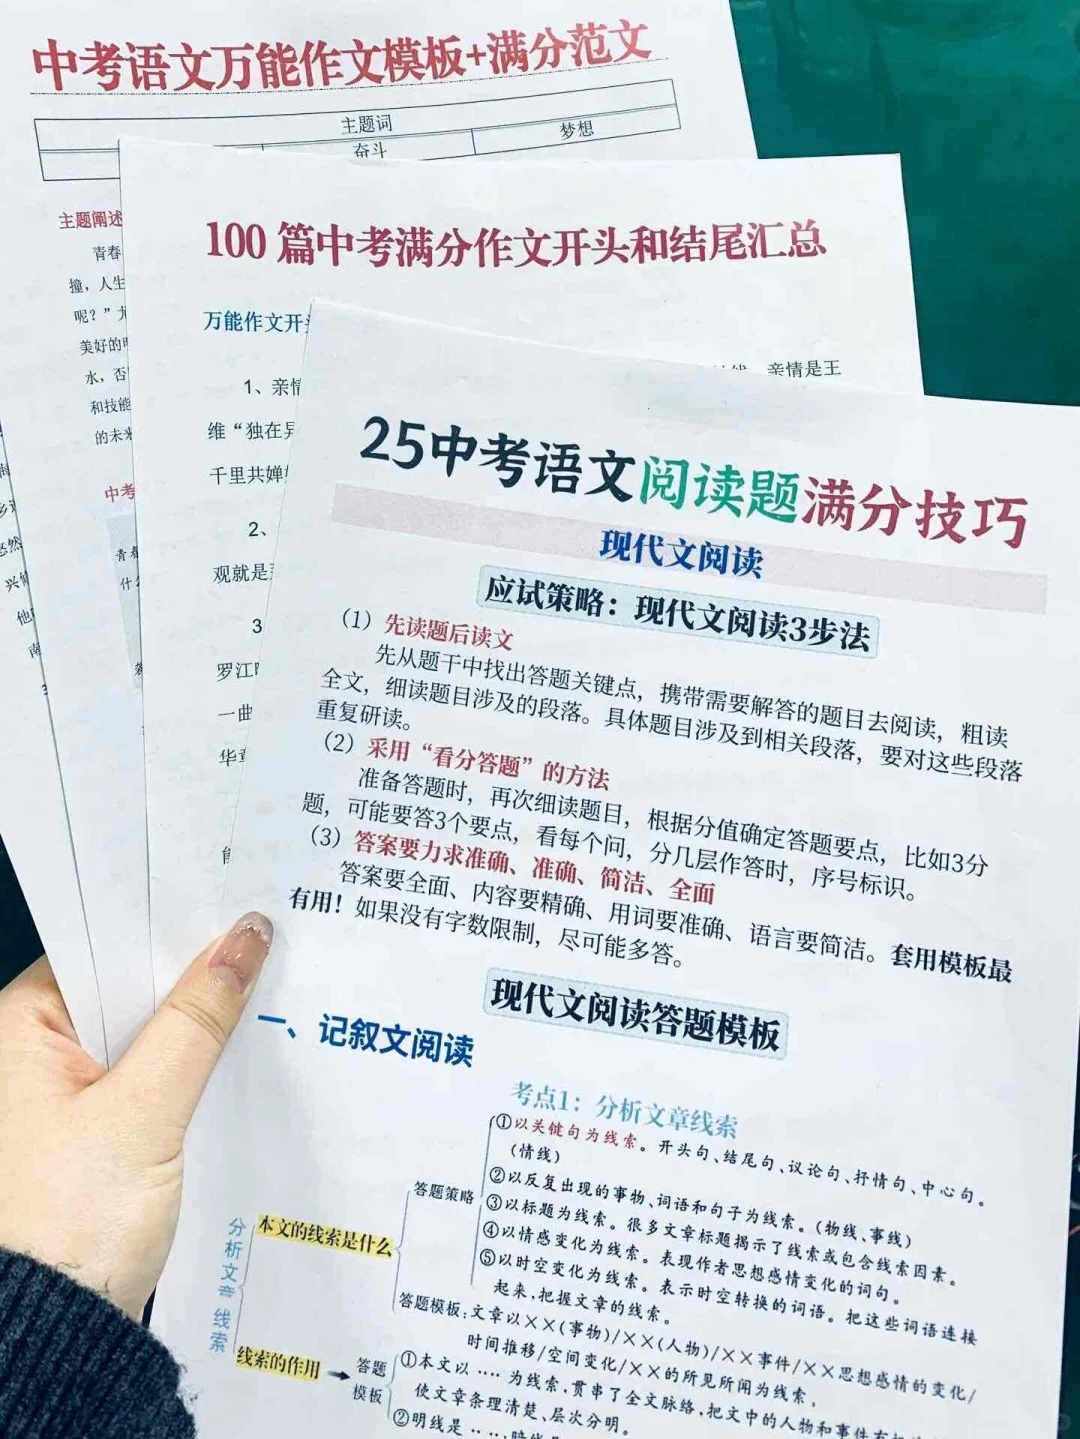 中考语文万能作文模板+满分范文
主题词
奋斗
梦想
主题阐述
青春
撞，人生
呢？”
美好的
水，否
和技能
的未来
中考
青春
什么
100 篇中考满分作文开头和结尾汇总
万能作文开头
1、亲情
亲情是王
维“独在异
千里共婵
2、
观就是
3
罗江
一曲
华章
能
25中考语文阅读题满分技巧
现代文阅读
应试策略：现代文阅读3步法
（1）先读题后读文
先从题干中找出答题关键点，携带需要解答的题目去阅读，粗读
全文，细读题目涉及的段落。具体题目涉及到相关段落，要对这些段落
重复研读。
（2）采用“看分答题”的方法
准备答题时，再次细读题目，根据分值确定答题要点，比如3分
题，可能要答3个要点，看每个问，分几层作答时，序号标识。
（3）答案要力求准确、准确、简洁、全面
答案要全面、内容要精确、用词要准确、语言要简洁。套用模板最
有用！如果没有字数限制，尽可能多答。
现代文阅读答题模板
一、记叙文阅读
考点1：分析文章线索
分析文章线索
本文的线索是什么
答题策略
①以关键句为线索。开头句、结尾句、议论句、抒情句、中心句。
(情线)
②以反复出现的事物、词语和句子为线索。(物线、事线)
③以标题为线索。很多文章标题揭示了线索或包含线索因素。
④以情感变化为线索。表现作者思想感情变化的词句。
⑤以时空变化为线索。表示时空转换的词语。把这些词语连接
起来，把握文章的线索。
答题模板：文章以××(事物)/××(人物)/××事件/××思想感情的变化/
时间推移/空间变化/××的所见所闻为线索，
线索的作用
答题
模板
①本文以……为线索，贯串了全文脉络，把文中的人物和事件有机
使文章条理清楚、层次分明。
②明线是……，暗线是